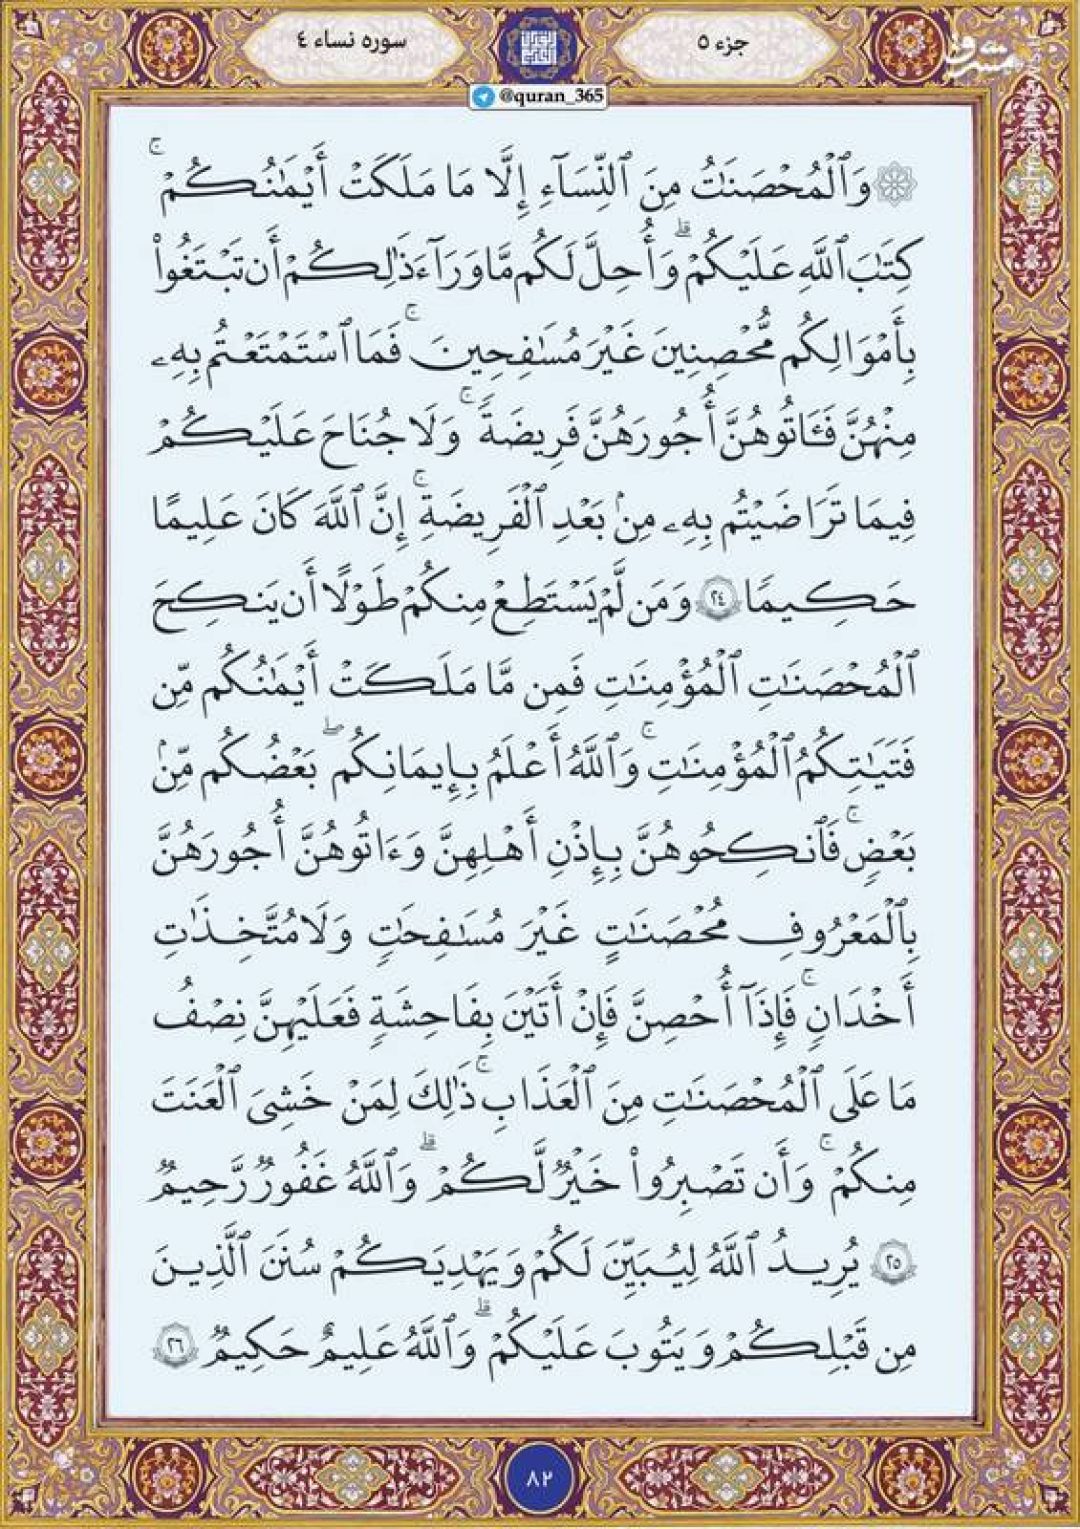 جزء ٥
سوره نساء ٤
@quran_365
وَٱلْمُحْصَنَٰتُ مِنَ ٱلنِّسَآءِ إِلَّا مَا مَلَكَتْ أَيْمَٰنُكُمْ ۚ
كِتَٰبَ ٱللَّهِ عَلَيْكُمْ ۗ وَأُحِلَّ لَكُم مَّا وَرَآءَ ذَٰلِكُمْ أَن تَبْتَغُوا۟
بِأَمْوَالِكُم مُّحْصِنِينَ غَيْرَ مُسَٰفِحِينَ ۚ فَمَا ٱسْتَمْتَعْتُم بِهِۦ
مِنْهُنَّ فَـَٔاتُوهُنَّ أُجُورَهُنَّ فَرِيضَةً ۚ وَلَا جُنَاحَ عَلَيْكُمْ
فِيمَا تَرَاضَيْتُم بِهِۦ مِنۢ بَعْدِ ٱلْفَرِيضَةِ ۚ إِنَّ ٱللَّهَ كَانَ عَلِيمًا
حَكِيمًا ٢٤ وَمَن لَّمْ يَسْتَطِعْ مِنكُمْ طَوْلًا أَن يَنكِحَ
ٱلْمُحْصَنَٰتِ ٱلْمُؤْمِنَٰتِ فَمِن مَّا مَلَكَتْ أَيْمَٰنُكُم مِّن
فَتَيَٰتِكُمُ ٱلْمُؤْمِنَٰتِ ۚ وَٱللَّهُ أَعْلَمُ بِإِيمَانِكُم ۖ بَعْضُكُم مِّنۢ
بَعْضٍ ۚ فَٱنكِحُوهُنَّ بِإِذْنِ أَهْلِهِنَّ وَءَاتُوهُنَّ أُجُورَهُنَّ
بِٱلْمَعْرُوفِ مُحْصَنَٰتٍ غَيْرَ مُسَٰفِحَٰتٍ وَلَا مُتَّخِذَٰتِ
أَخْدَانٍ ۚ فَإِذَآ أُحْصِنَّ فَإِنْ أَتَيْنَ بِفَاحِشَةٍ فَعَلَيْهِنَّ نِصْفُ
مَا عَلَى ٱلْمُحْصَنَٰتِ مِنَ ٱلْعَذَابِ ۚ ذَٰلِكَ لِمَنْ خَشِىَ ٱلْعَنَتَ
مِنكُمْ ۚ وَأَن تَصْبِرُوا۟ خَيْرٌ لَّكُمْ ۗ وَٱللَّهُ غَفُورٌ رَّحِيمٌ
٢٥ يُرِيدُ ٱللَّهُ لِيُبَيِّنَ لَكُمْ وَيَهْدِيَكُمْ سُنَنَ ٱلَّذِينَ
مِن قَبْلِكُمْ وَيَتُوبَ عَلَيْكُمْ ۗ وَٱللَّهُ عَلِيمٌ حَكِيمٌ ٢٦
٨٢